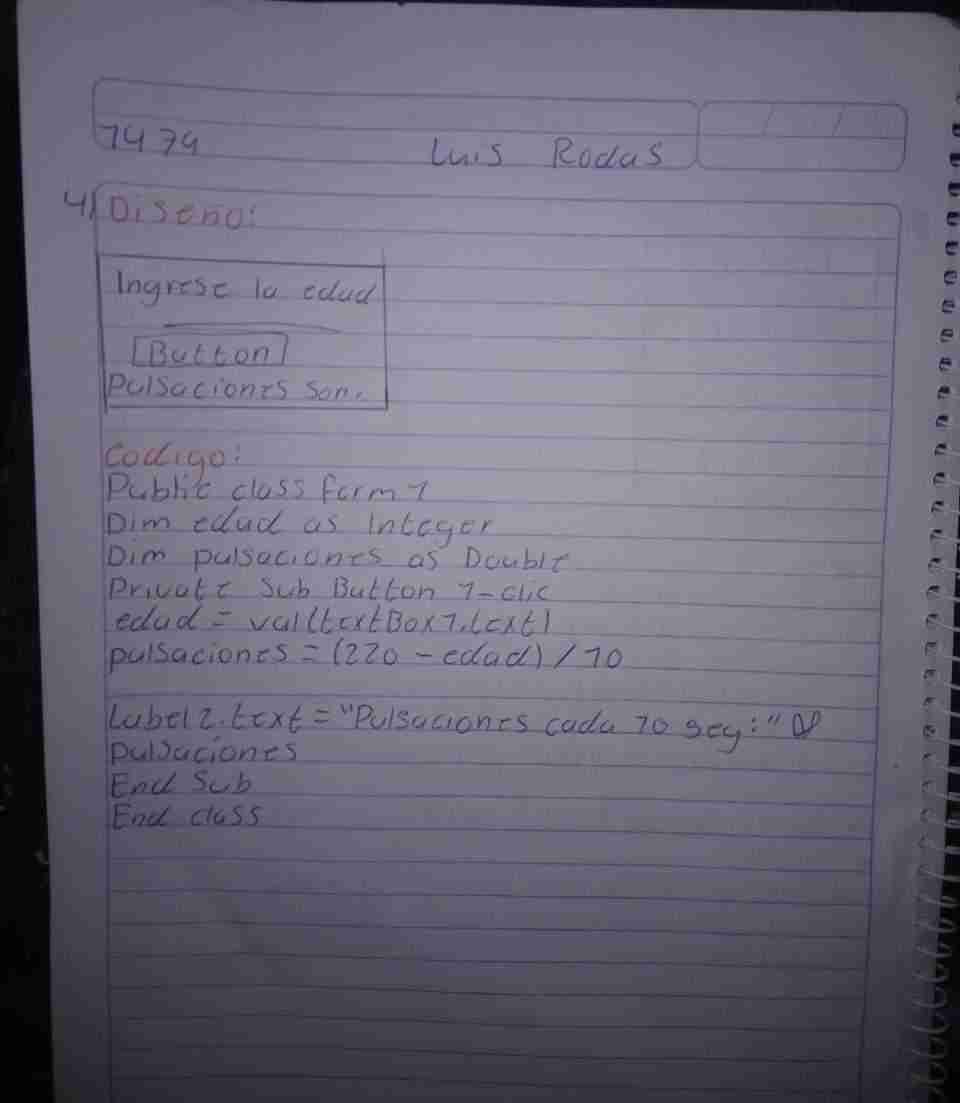 1474 Luis Rodas
4) Diseño:
Ingrese la edad
[Button]
Pulsaciones son.
Codigo:
Public class form 1
Dim edad as Integer
Dim pulsaciones as Double
Private Sub Button 1-clic
edad = val(textBox1.text)
pulsaciones = (220 - edad) / 10
Label2.text = "Pulsaciones cada 10 seg:" &
pulsaciones
End Sub
End class